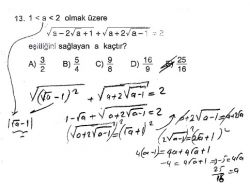 13. 1 < a < 2 olmak üzere
√(a - 2√a + 1) + √(a + 2√(a - 1)) = 2
eşitliğini sağlayan a kaçtır?
A) 3/2 B) 5/4 C) 9/8 D) 16/9 E) 25/16
√((√a - 1)²) + √(a + 2√(a-1)) = 2
|√a - 1|
1 - √a + √(a + 2√(a-1)) = 2
(√(a + 2√(a-1)))² = (√a + 1)²
a + 2√(a-1) = a + 2√a + 1
(2√(a-1))² = (2√a + 1)²
4(a-1) = 4a + 4√a + 1
-4 = 4√a + 1 ⇒ -5 = 4√a
25/16 = a